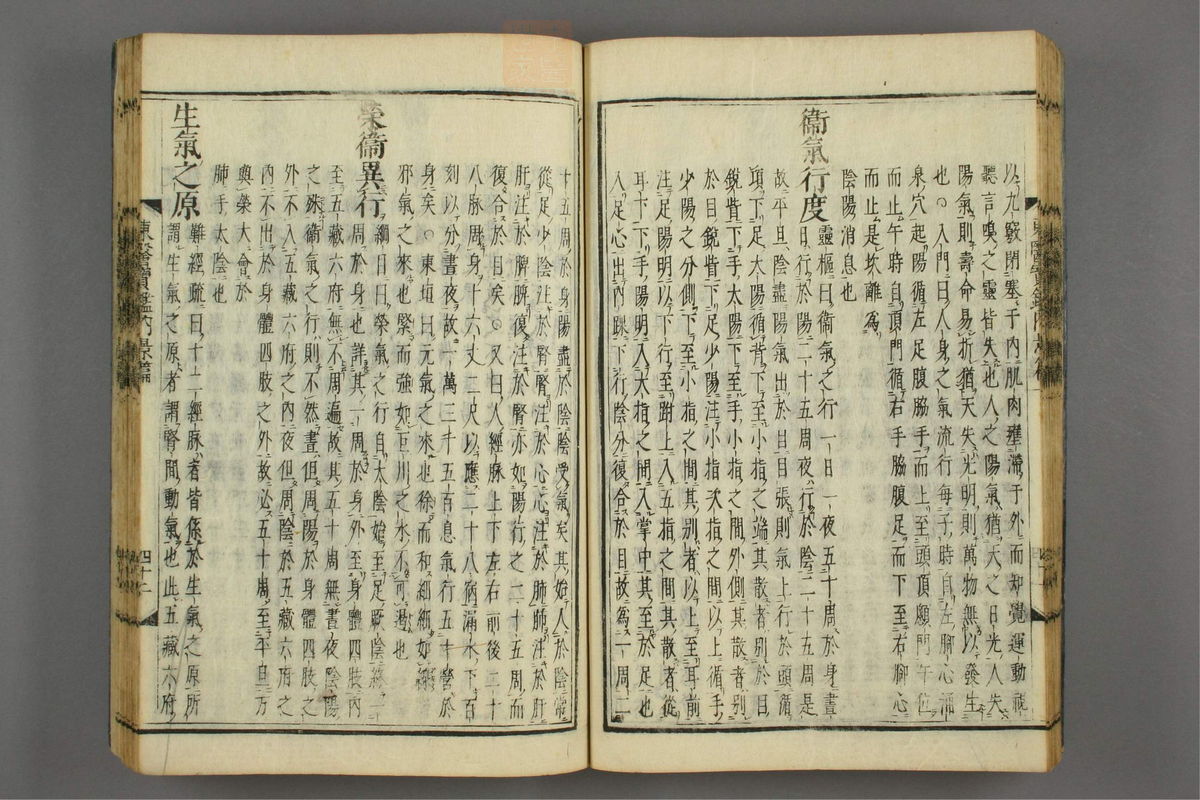 以九竅閉塞于內肌肉壅滯于外而知覺運動視
聽言嗅之靈皆失也人之陽氣猶天之日光人失
陽氣則壽命易折猶天失光明則萬物無以發生
也○入門曰人身之氣流行每子時自左腳心涌
泉穴起陽循左足腹脇手而上至頭頂顖門午位
而止午時自頂門循右手脇腹足而下至右腳心
而止是坎離為
陰陽消息也
衞氣行度 靈樞曰衞氣之行一日一夜五十周於身晝
日行於陽二十五周夜行於陰二十五周是
故平旦陰盡陽氣出於目目張則氣上行於頭循
項下足太陽循背下至小指之端其散者別於目
銳眥下手太陽下至手小指之間外側其散者別
於目銳眥下足少陽注小指次指之間以上循手
少陽之分側下至小指之間其別者以上至耳前
注足陽明以下行至跗上入五指之間其散者從
耳下下手陽明入大指之間入掌中其至於足也
入足心出內踝下行陰分復合於目故為一周二
十五周於身陽盡於陰陰受氣矣其始入於陰常
從足少陰注於腎腎注於心心注於肺肺注於肝
肝注於脾脾復注於腎亦如陽行之二十五周而
復合於目矣○又曰人經脉上下左右前後二十
八脉周身十六丈二尺以應二十八宿漏水下百
刻以分晝夜故一萬三千五百息氣行五十營於
身矣○東垣曰元氣之來也徐而和細細如線
邪氣之來也緊而強如巨川之水不可遏也
榮衞異行 綱目曰榮氣之行自太陰始至足厥陰終一
周於身也詳其一周於身外至身體四肢內
至五藏六府無不周遍故其五十周無晝夜陰陽
之殊衞氣之行則不然晝但周陽於身體四肢之
外不入五藏六府之內夜但周陰於五藏六府之
內不出於身體四肢之外故必五十周至平旦方
與榮大會於
肺手太陰也
生氣之原 難經疏曰十二經脉者皆係於生氣之原所
謂生氣之原者謂腎間動氣也此五藏六府
東醫寶鑑內景篇
四十二